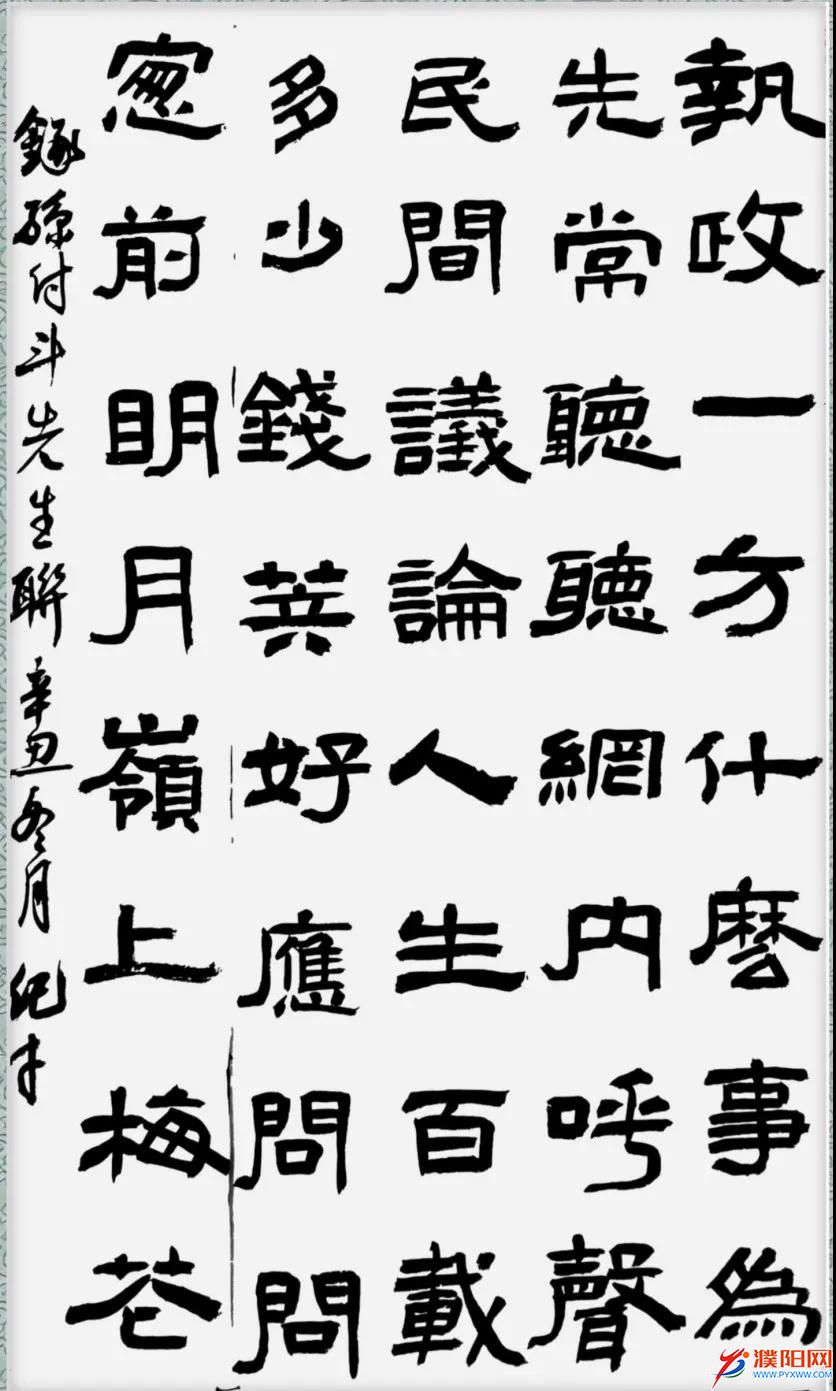 執政一方什麽事為
先常聽聽網内呼聲
民間議論人生百載
多少錢莫好應問問
窓前明月嶺上梅花
錄孫付斗先生聯辛丑冬月纪才
濮阳网
WWW.PYXWW.COM